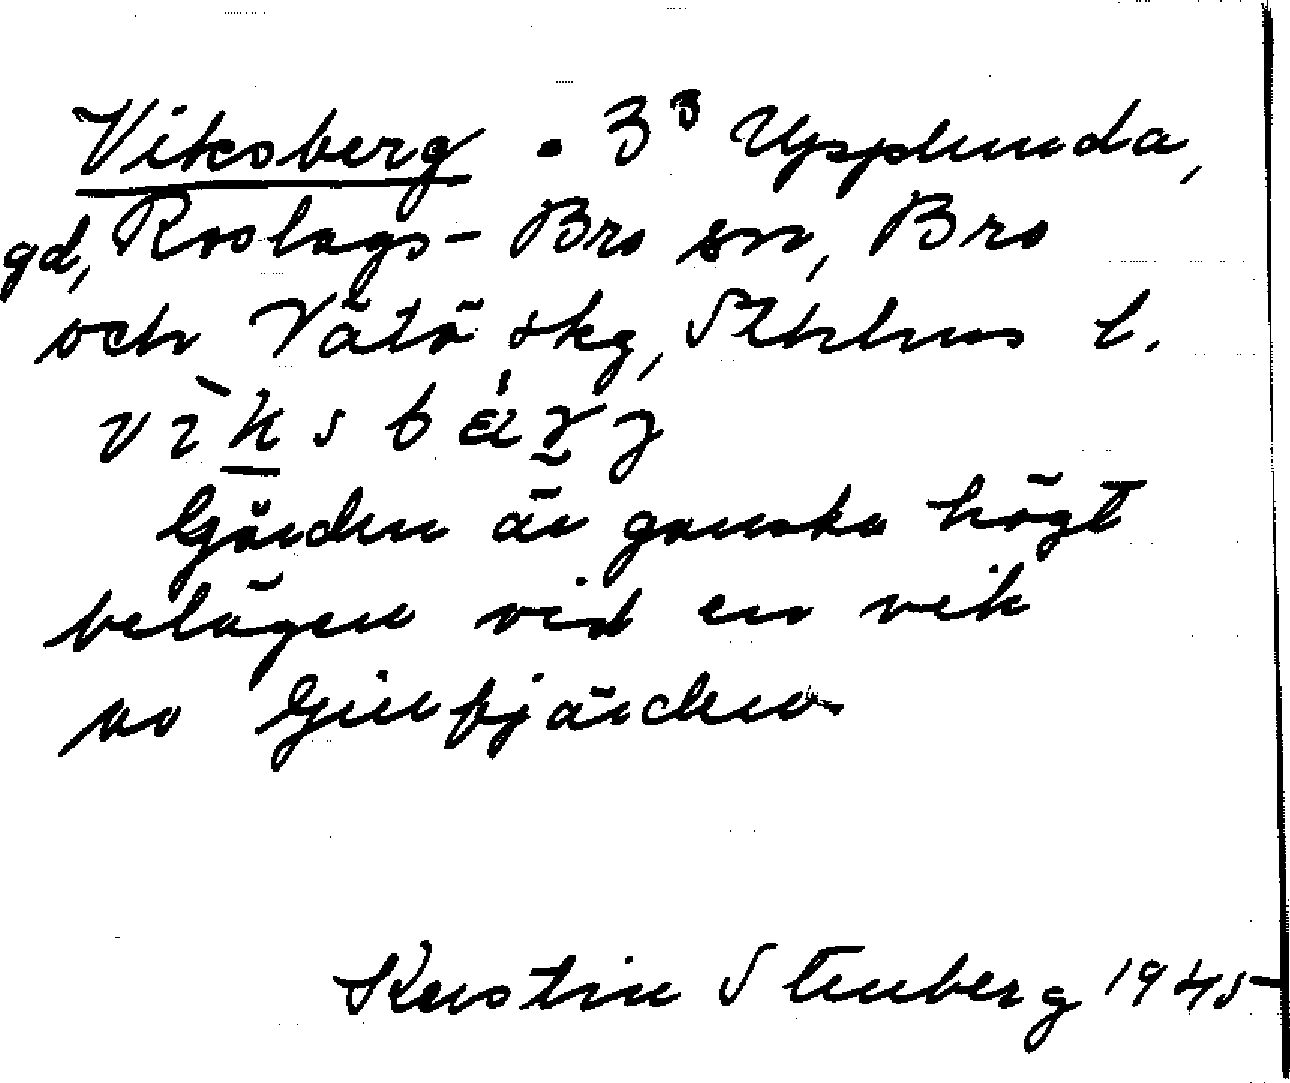 Viksberg . 3³ Upplunda,
gd, Roslags-Bro sn, Bro
och Vätö skg, Sthlms l.
vìk̲sbɛ́rj
Gården är ganska högt
belägen vid en vik
av Gillfjärden
Kerstin Stenberg 1945